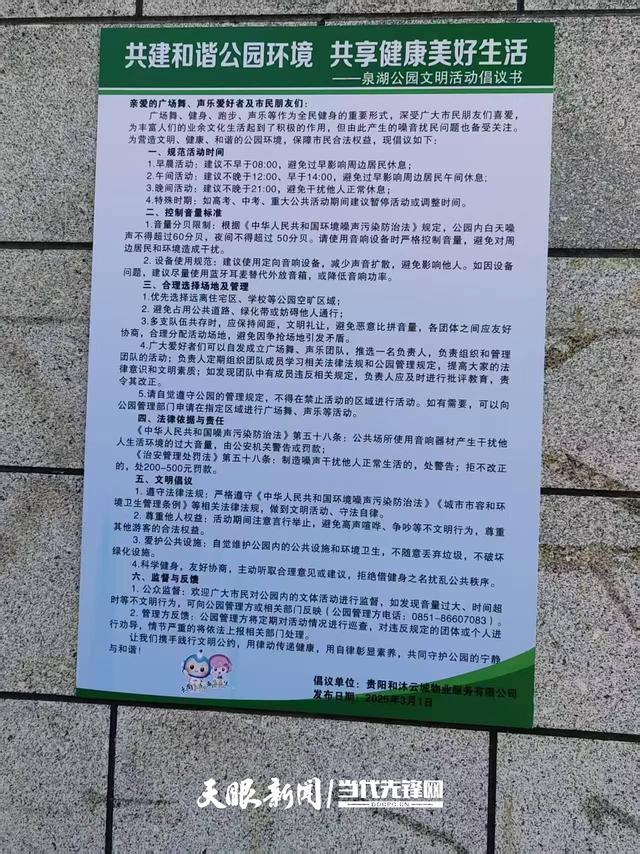 共建和谐公园环境 共享健康美好生活
——泉湖公园文明活动倡议书
亲爱的广场舞、声乐爱好者及市民朋友们：
广场舞、健身、跑步、声乐等作为全民健身的重要形式，深受广大市民朋友们喜爱，
为丰富人们的业余文化生活起到了积极的作用，但由此产生的噪音扰民问题也备受关注。
为营造文明、健康、和谐的公园环境，保障市民合法权益，现倡议如下：
一、规范活动时间
1.早晨活动：建议不早于08:00，避免过早影响周边居民休息；
2.午间活动：建议不晚于12:00、早于14:00，避免过早影响周边居民午间休息；
3.晚间活动：建议不晚于21:00，避免干扰他人正常休息；
4.特殊时期：如高考、中考、重大公共活动期间建议暂停活动或调整时间。
二、控制音量标准
1.音量分贝限制：根据《中华人民共和国环境噪声污染防治法》规定，公园内白天噪
声不得超过60分贝，夜间不得超过 50分贝。请使用音响设备时严格控制音量，避免对周
边居民和环境造成干扰。
2. 设备使用规范：建议使用定向音响设备，减少声音扩散，避免影响他人。如因设备
问题，建议尽量使用蓝牙耳麦替代外放音箱，或降低音响功率。
三、合理选择场地及管理
1.优先选择远离住宅区、学校等公园空旷区域；
2. 避免占用公共道路、绿化带或妨碍他人通行；
3.多支队伍共存时，应保持间距，文明礼让，避免恶意比拼音量，各团体之间应友好
协商，合理分配活动场地，避免因争抢场地引发矛盾。
4.广大爱好者们可以自发成立广场舞、声乐团队，推选一名负责人，负责组织和管理
团队的活动；负责人定期组织团队成员学习相关法律法规和公园管理规定，提高大家的法
律意识和文明素质；如发现团队中有成员违反相关规定，负责人应及时进行批评教育，责
令其改正。
5.请自觉遵守公园的管理规定，不得在禁止活动的区域进行活动。如有需要，可以向
公园管理部门申请在指定区域进行广场舞、声乐等活动。
四、法律依据与责任
《中华人民共和国噪声污染防治法》第五十八条：公共场所使用音响器材产生干扰他
人生活环境的过大音量，由公安机关警告或罚款；
《治安管理处罚法》第五十八条：制造噪声干扰他人正常生活的，处警告；拒不改正
的，处200-500元罚款。
五、文明倡议
1. 遵守法律法规：严格遵守《中华人民共和国环境噪声污染防治法》《城市市容和环
境卫生管理条例》等相关法律法规，做到文明活动、守法自律。
2. 尊重他人权益：活动期间注意言行举止，避免高声喧哗、争吵等不文明行为，尊重
其他游客的合法权益。
3. 爱护公共设施：自觉维护公园内的公共设施和环境卫生，不随意丢弃垃圾，不破坏
绿化设施。
4.科学健身，友好协商，主动听取合理意见或建议，拒绝借健身之名扰乱公共秩序。
六、监督与反馈
1. 公众监督：欢迎广大市民对公园内的文体活动进行监督，如发现音量过大、时间超
时等不文明行为，可向公园管理方或相关部门反映（公园管理方电话：0851-86607083）。
2. 管理方反馈：公园管理方将定期对活动情况进行巡查，对违反规定的团体或个人进
行劝导，情节严重的将依法上报相关部门处理。
让我们携手践行文明公约，用律动传递健康，用自律彰显素养，共同守护公园的宁静
与和谐！
倡议单位：贵阳和沐云城物业服务有限公司
发布日期：2025年3月1日
天眼新闻 当代先锋网
DDCPC.CN